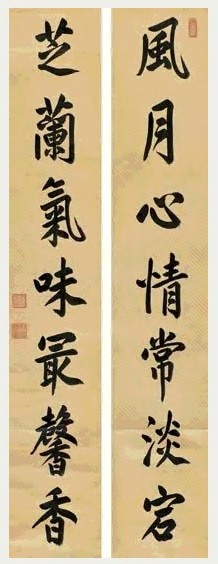 風月心情常淡宕
芝蘭氣味最馨香